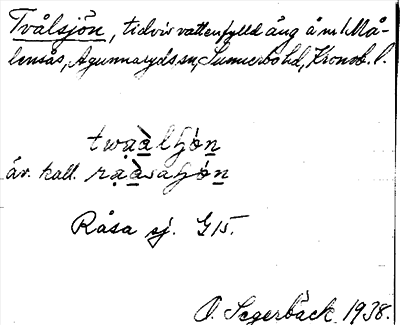 Tvålsjön, tidvis vattenfylld äng å m1 Må-
lensås, Agunnaryds sn, Sunnerbo hd, Kronob. l.
twạàlʃón
äv. kall. rạàsaʃón
Råsa sj. G15.
O. Segerbäck 1938.